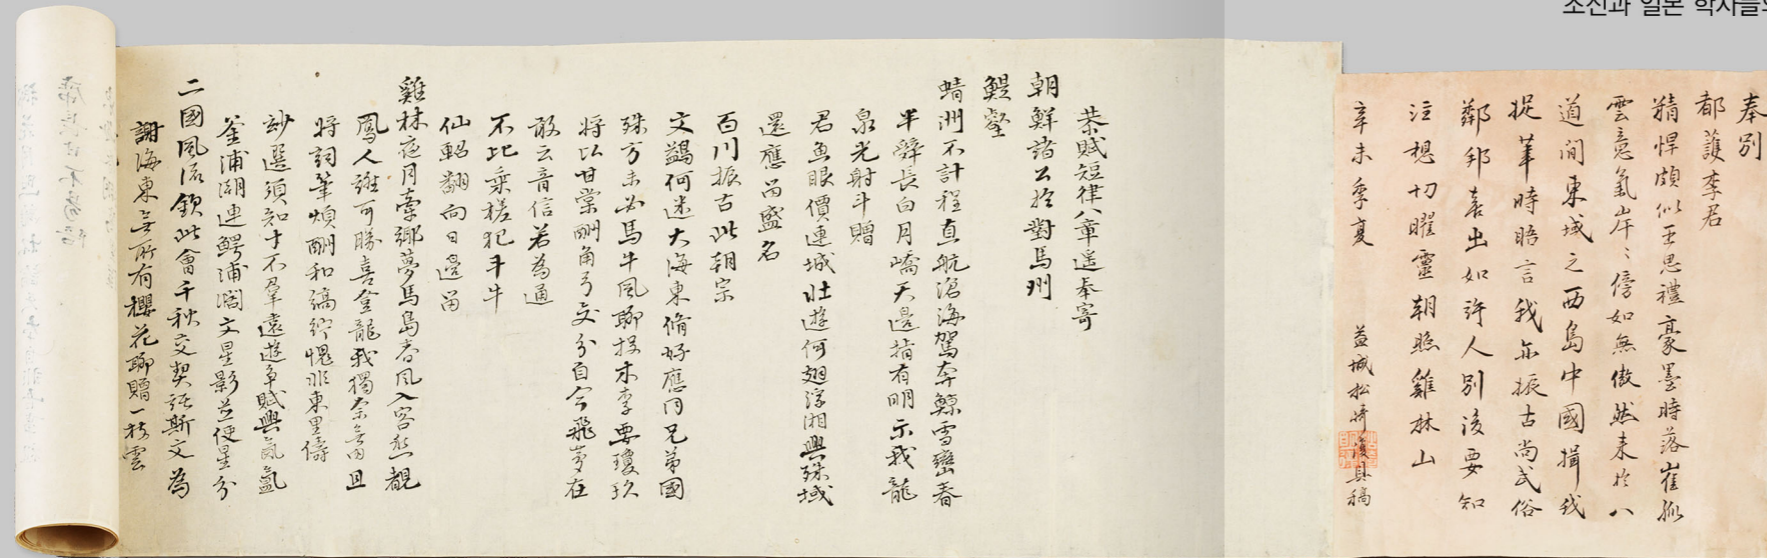 조선과 일본 학사들의
奉別
都護李君
精悍頗似王思禮豪墨時落崔孤
雲意氣岸々傍如無傲然来於八
道间東域之西島中國揖我
捉筆時晤言我亦振古尚武俗
鄰邦喜出如許人別後要知
注想切曜靈朝照雞林山
辛未季夏
益城松崎復具稿
恭賦短律八章遥奉寄
朝鮮諸公於對馬州
鯷壑
蜻洲不計程直航滄海駕奔鯨雪巒春
半舜長白月嶠天邊指有明示我龍
泉光射斗贈
君魚眼價連城壮遊何翅浮湘興殊域
還應留盛名
百川振古此朝宗
文鷁何迷大海東脩好應同兄弟國
殊方未必馬牛風聊投木李要瓊玖
将以甘棠酬角弓交分自今飛夢在
敢云音信若為通
不比乗槎犯斗牛
仙軺翩向日邊留
雞林夜月牽鄉夢馬島春風入容愁觀
鳳人誰可勝喜登龍我獨奈無由且
将詞筆煩酬和縞紵愧非東里儔
妙選須知才不羣遠遊争賦興氤氲
釜浦潮連鰐浦濶文星影並使星分
二國風流欽此會千秋交契託斯文為
謝海東無所有櫻花聊贈一枝雲